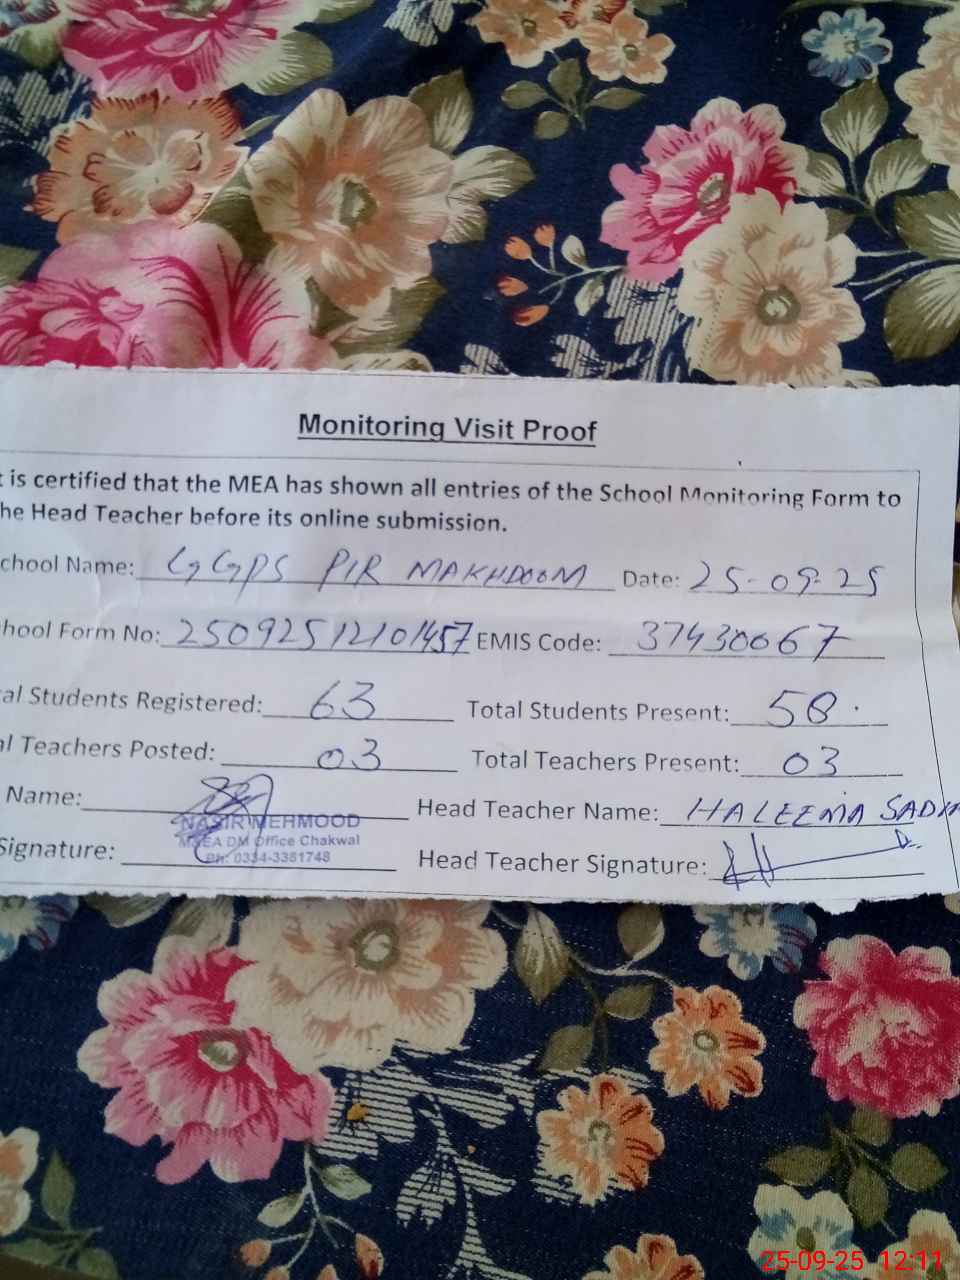 Monitoring Visit Proof
t is certified that the MEA has shown all entries of the School Monitoring Form to
he Head Teacher before its online submission.
chool Name: GGPS PIR MAKHDOOM Date: 25-09-25
hool Form No: 25092512101457 EMIS Code: 37430067
al Students Registered: 63 Total Students Present: 58
al Teachers Posted: 03 Total Teachers Present: 03
Name: Head Teacher Name: HALEEMA
NASIR MEHMOOD
MEA DM Office Chakwal
Ph: 0334-3381748
Signature: Head Teacher Signature:
25-09-25 12:11